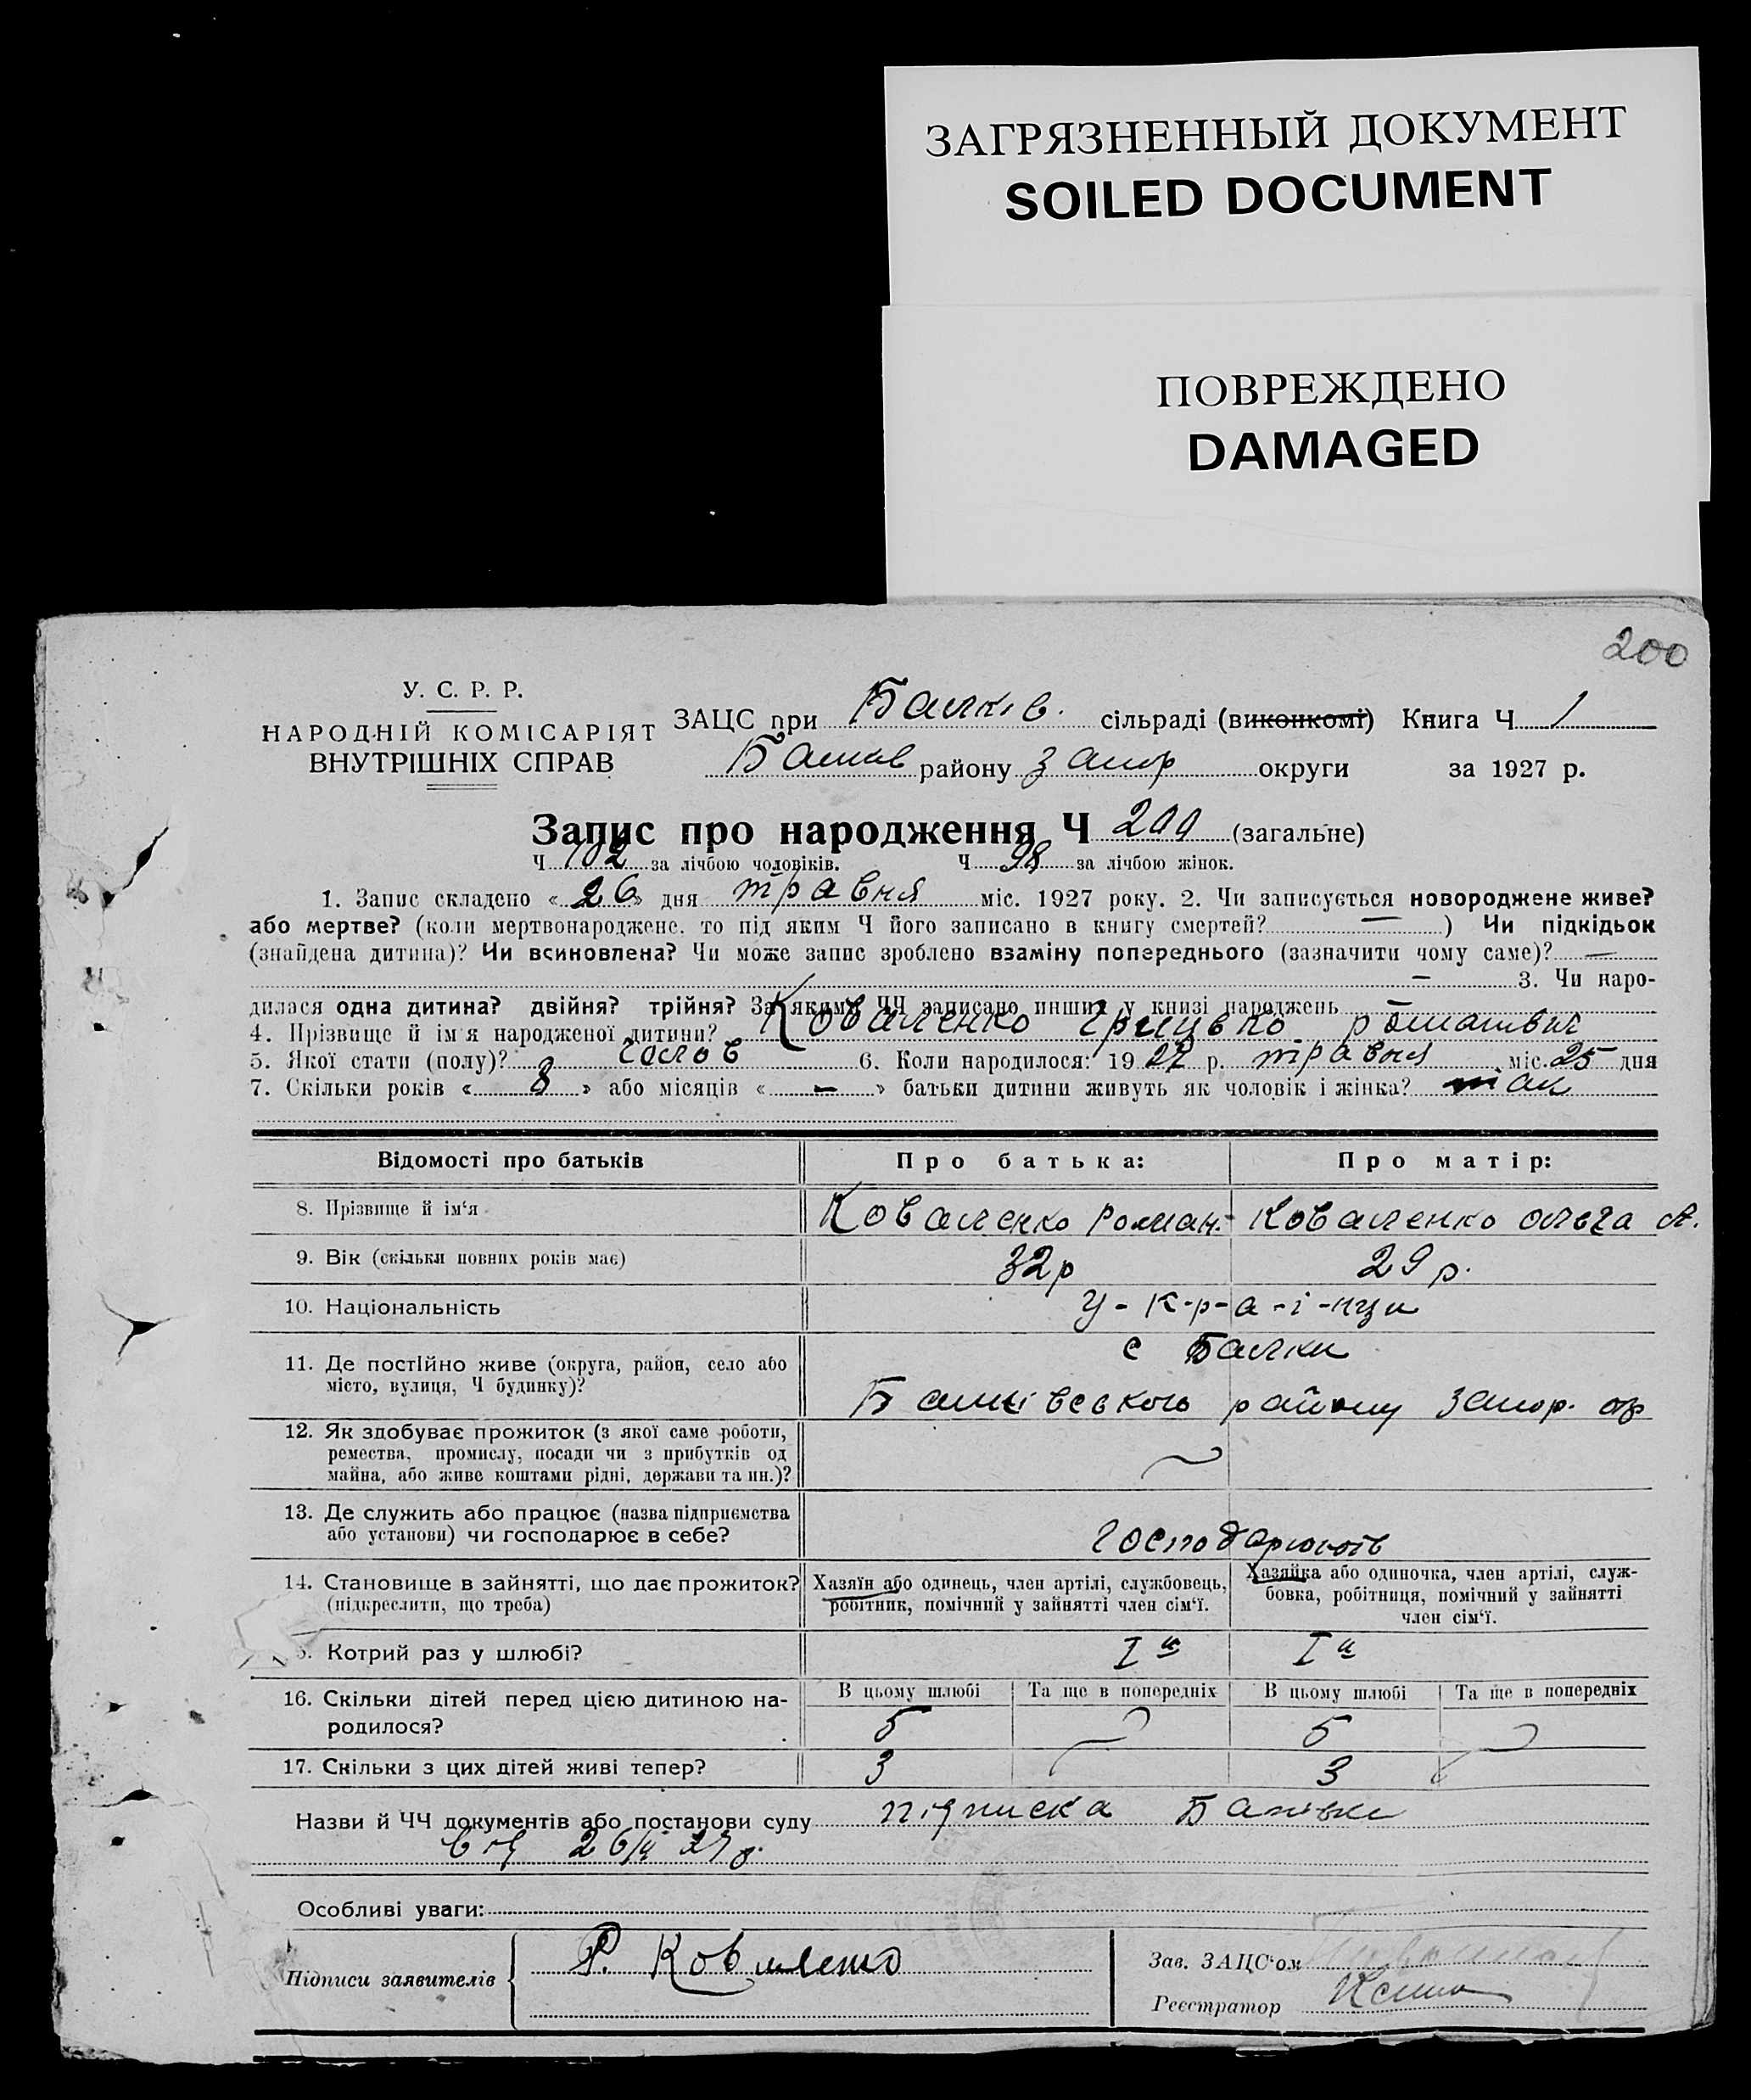 ЗАГРЯЗНЕННЫЙ ДОКУМЕНТ
SOILED DOCUMENT
ПОВРЕЖДЕНО
DAMAGED
200
У. С. Р. Р.
НАРОДНІЙ КОМІСАРІЯТ
ВНУТРІШНІХ СПРАВ
ЗАЦС при Балків. сільраді (виконкомі) Книга Ч 1
району Запор округи за 1927 р.
Запис про народження Ч 200 (загальне)
Ч 102 за лічбою чоловіків. Ч 98 за лічбою жінок.
1. Запис складено « 26 » дня травня міс. 1927 року. 2. Чи записується новороджене живе?
або мертве? (коли мертвонароджене, то під яким Ч його записано в книгу смертей? — ) Чи підкідьок
(знайдена дитина)? Чи всиновлена? Чи може запис зроблено взаміну попереднього (зазначити чому саме)? —
— 3. Чи наро-
дилася одна дитина? двійня? трійня? За якими ЧЧ записано инших у книзі народжень —
4. Прізвище й ім'я народженої дитини? Коваленко Грицько Романович
5. Якої стати (полу)? чолов 6. Коли народилося: 1927 р. травня міс. 25 дня
7. Скільки років « 8 » або місяців « — » батьки дитини живуть як чоловік і жінка? так
Відомості про батьків Про батька: Про матір:
8. Прізвище й ім'я Коваленко Роман. Коваленко Ольга А.
9. Вік (скільки повних років має) 32 р 29 р.
10. Національність У-к-р-а-і-нци
11. Де постійно живе (округа, район, село або
місто, вулиця, Ч будинку)?
с Балки
району Запор. окр
12. Як здобуває прожиток (з якої саме роботи,
ремества, промислу, посади чи з прибутків од
майна, або живе коштами рідні, держави та ин.)?
13. Де служить або працює (назва підприємства
або установи) чи господарює в себе?
Господарюють
14. Становище в зайнятті, що дає прожиток?
(підкреслити, що треба)
Хазяїн або одинець, член артілі, службовець,
робітник, помічний у зайнятті член сім'ї.
Хазяйка або одиночка, член артілі, служ-
бовка, робітниця, помічний у зайнятті
член сім'ї.
Котрий раз у шлюбі? I й I й
16. Скільки дітей перед цією дитиною на-
родилося?
В цьому шлюбі Та ще в попередніх В цьому шлюбі Та ще в попередніх
5 5
17. Скільки з цих дітей живі тепер? 3 3
Назви й ЧЧ документів або постанови суду підписка
Особливі уваги:
Підписи заявителів Р. Коваленко
Зав. ЗАЦС'ом
Реєстратор